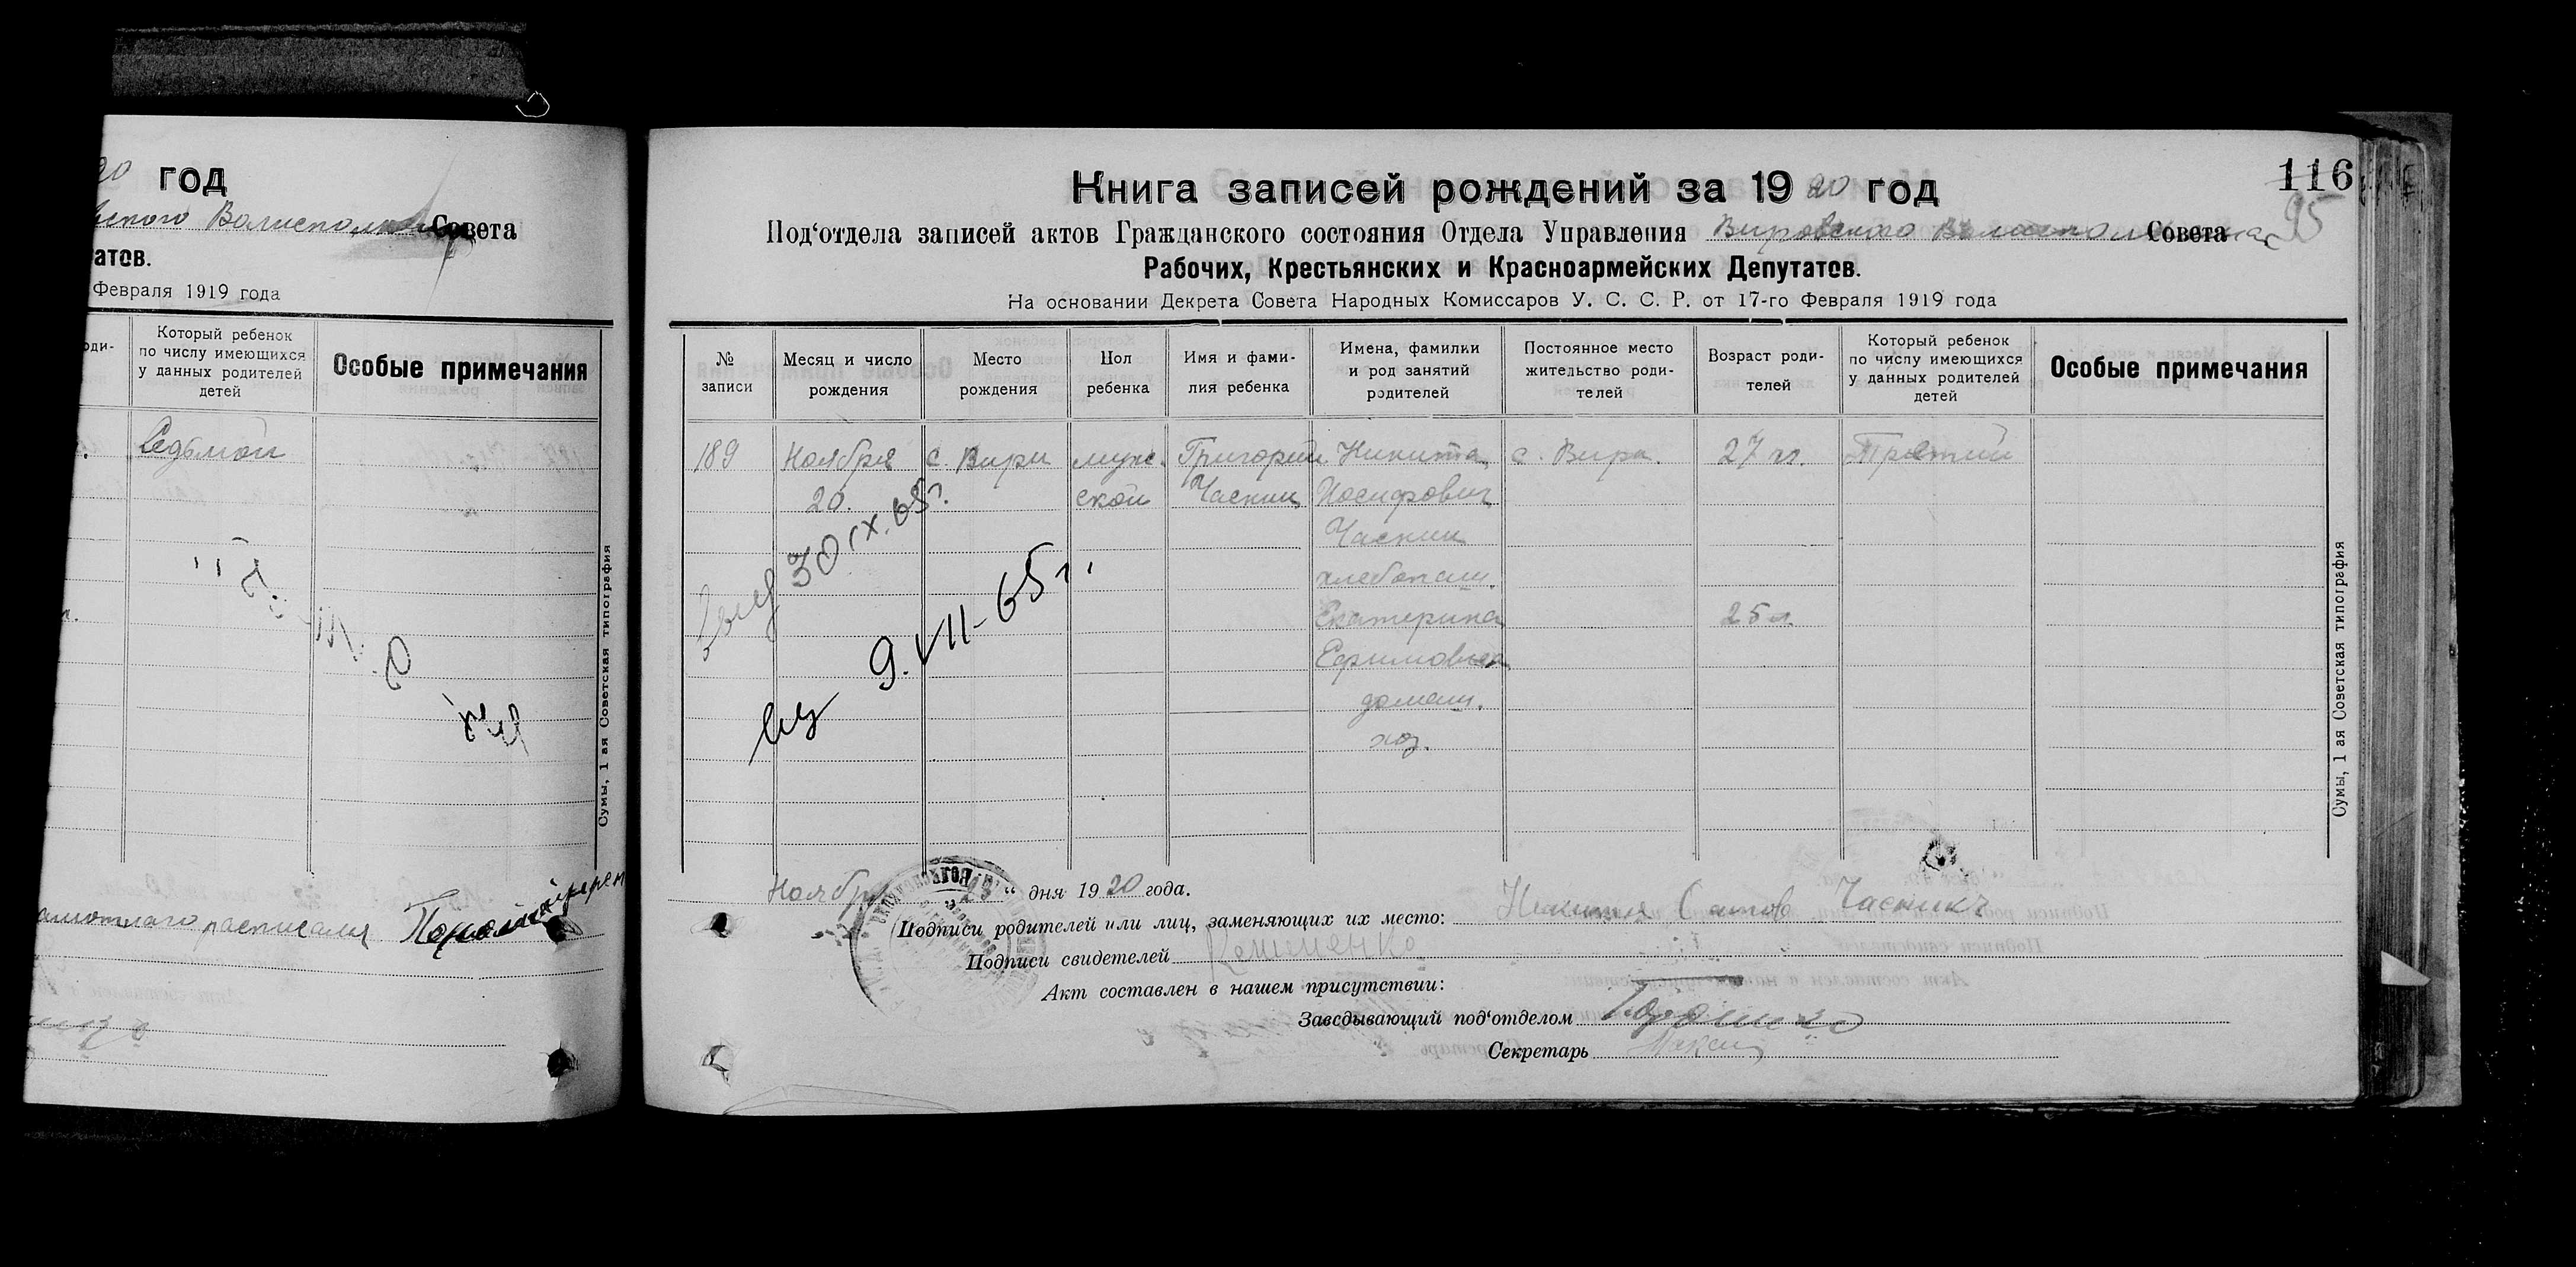 20 год
Волисполкома Совета
атов.
Февраля 1919 года
оди-
Который ребенок
по числу имеющихся
у данных родителей
детей
Особые примечания
Седьмой
расписался
Сумы, 1 ая Советская типография
116
95
Книга записей рождений за 1920 год
Под‘отдела записей актов Гражданского состояния Отдела Управления Вировского Волисполкома Совета
Рабочих, Крестьянских и Красноармейских Депутатов.
На основании Декрета Совета Народных Комиссаров У. С. С. Р. от 17-го Февраля 1919 года
№
записи
Месяц и число
рождения
Место
рождения
Пол
ребенка
Имя и фами-
лия ребенка
Имена, фамилии
и род занятий
родителей
Постоянное место
жительство роди-
телей
Возраст роди-
телей
Который ребенок
по числу имеющихся
у данных родителей
детей
Особые примечания
189 Ноября с. Вири муж. Григорий Никита с. Вири. 27 л. Третий
20. ской Часник Иосифович
Часник
хлебопаш.
Екатерина 25 л.
Ефимовна
домаш.
хоз.
30 IX. 65 г.
9. VII - 65 г.
Ноября 23 “ дня 1920 года.
Подписи родителей или лиц, заменяющих их место: Никита Часник
Подписи свидетелей
Акт составлен в нашем присутствии:
Заведывающий под‘отделом
Секретарь
Сумы, 1 ая Советская типография